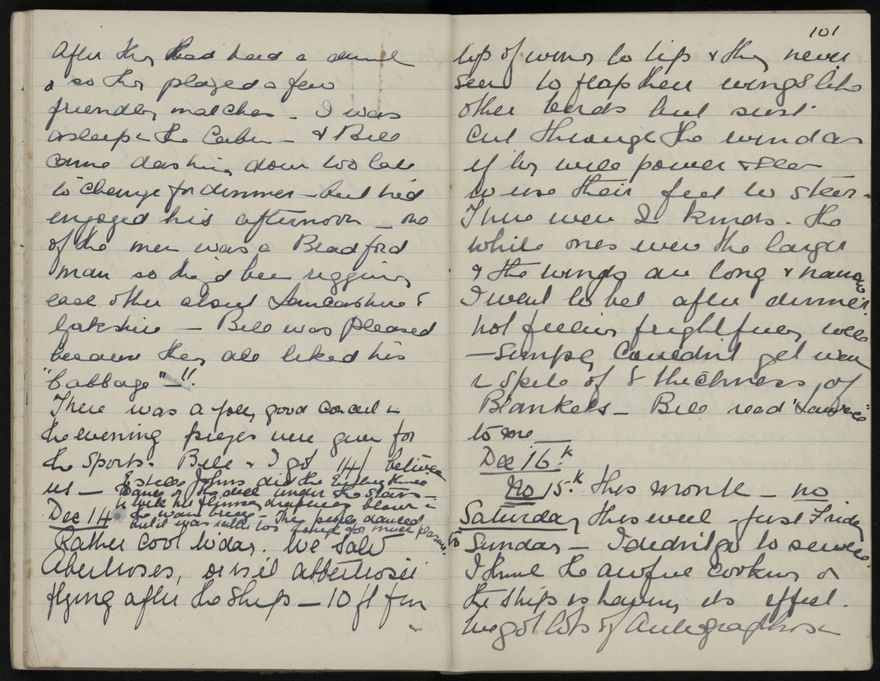 After they had had a
& so they played a few
friendly matches. I was
asleep in the Cabin — & Bill
came dashing down too late
to change for dinner — but he'd
enjoyed his afternoon — one
of the men was a Bradford
man so they'd been
each other about Lancashire &
Yorkshire — Bill was pleased
because they all liked his
"Cabbage" — !!
There was a jolly good concert in
the evening prizes were given for
the Sports. Bill & I got 14/ between
us — Johns did the
dance on the deck under the stars —
with her flowing draperies
Dec 14
but it was rather too for much pleasure.
Rather cool today. We saw
Albatrosses, or is it albatrossii
flying after the ship — 10 ft from
101
tip of wing to tip & they never
seem to flap their wings like
other birds but just
cut through the wind as
if by will power & seem
to use their feet to steer.
There were 2 kinds. The
white ones were the larger
& the wings are long & narrow
I went to bed after dinner
not feeling frightfully well
— simply couldn't get warm
in spite of 8 thicknesses of
Blankets — Bill read
to me
Dec 16th
No 15th this month — no
Saturday this week — just Friday
to Sunday — I didn't go to service.
I think the awful cooking on
the ship is having its effect.
We got lots of Autographs on